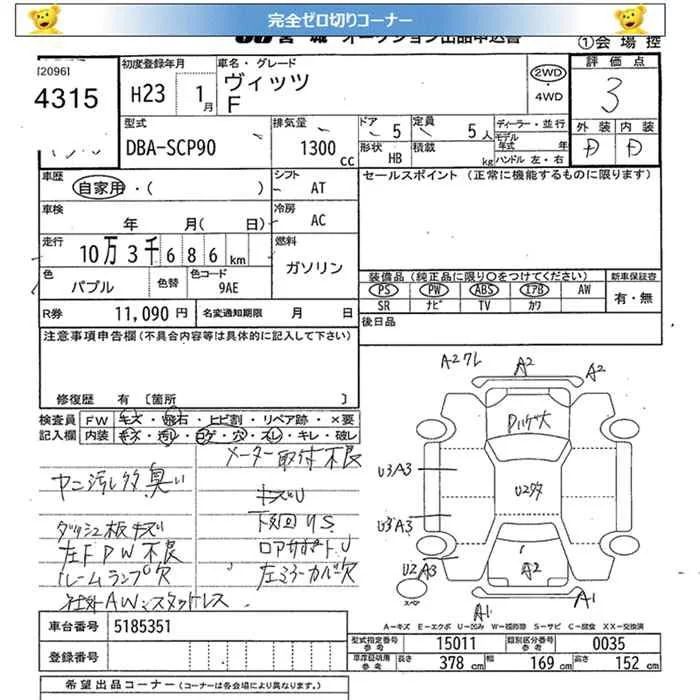 完全ゼロ切りコーナー
JU宮城 オークション出品申込書
①会場控
[2096]
4315
初度登録年月
H23 1月
車名・グレード
ヴィッツ
F
2WD
・4WD
評価点
3
外装 内装
D D
型式
DBA-SCP90
排気量
1300 cc
ドア 5
定員 5人
形状 HB
積載 kg
ディーラー・並行
モデル年式 年
ハンドル 左・右
車歴
自家用・( )
シフト
AT
セールスポイント (正常に機能するものに限ります)
車検
年 月( 日)
冷房
AC
走行
10万3千686km
燃料
ガソリン
色
パプル
色替
色コード
9AE
装備品(純正品に限り○をつけてください)
新車保証書
PS PW ABS エアB AW
有・無
SR ナビ TV カワ
R券 11,090円
名変通知期限 月 日
後日品
注意事項申告欄(不具合内容等は具体的に記入して下さい)
修復歴 有 [箇所 ]
検査員記入欄
FW キズ・飛石・ヒビ割・リペア跡・×要
内装 キズ・汚レ・コゲ・穴・スレ・キレ・破レ
メーター取付不良
ヤニ汚レ多臭い
キズU
ダッシュ板キズ
下回りS
左FPW不良
ロアサポートU
ルームランプ欠
左ミラーカバー欠
社外AWスタッドレス
A27L
A2
A2
Dハゲ大
U3A3
U2多
U3A3
U2A3
A2
スペア
A1
A1
A-キズ E-エクボ U-凹み W-補修跡 S-サビ C-腐食 XX-交換済
車台番号 5185351
登録番号
型式指定番号 参考 15011
類別区分番号 参考 0035
車庫証明用 参考
長さ 378cm
幅 169cm
高さ 152cm
希望出品コーナー(各会場により異なります。)